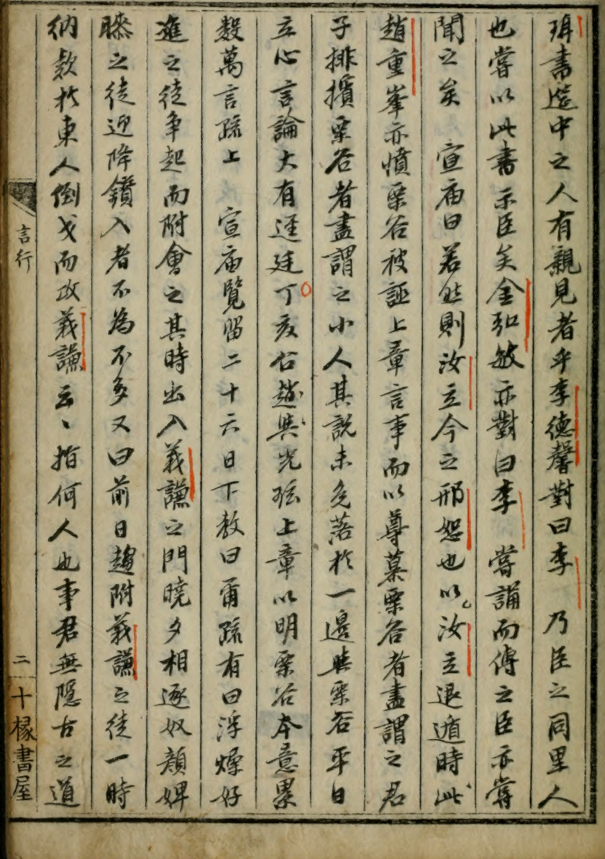 珥書筵中之人有親見者乎李德馨對曰李　乃臣之同里人
也嘗以此書示臣矣金弘敏亦對曰李　嘗誦而傳之臣亦嘗
聞之矣　宣庙曰若然則汝立今之邢恕也以汝立退遁時此
趙重峯亦憤栗谷被誣上章言事而以尊慕栗谷者盡謂之君
子排擯栗谷者盡謂之小人其說未免落於一邊與栗谷平日
立心言論大有逕廷丁亥公趙與光玹上章以明栗谷本意累
數萬言疏上　宣庙覽留二十六日下教曰甭疏有曰浮燥好
進之徒爭起而附會之其時出入義謙之門曉夕相逐奴顔婢
膝之徒迎降鑽入者不為不多又曰前日趨附義謙之徒一時
納欵於東人倒戈而攻義謙云〻指何人也事君無隠古之道
言行
二
十椽書屋